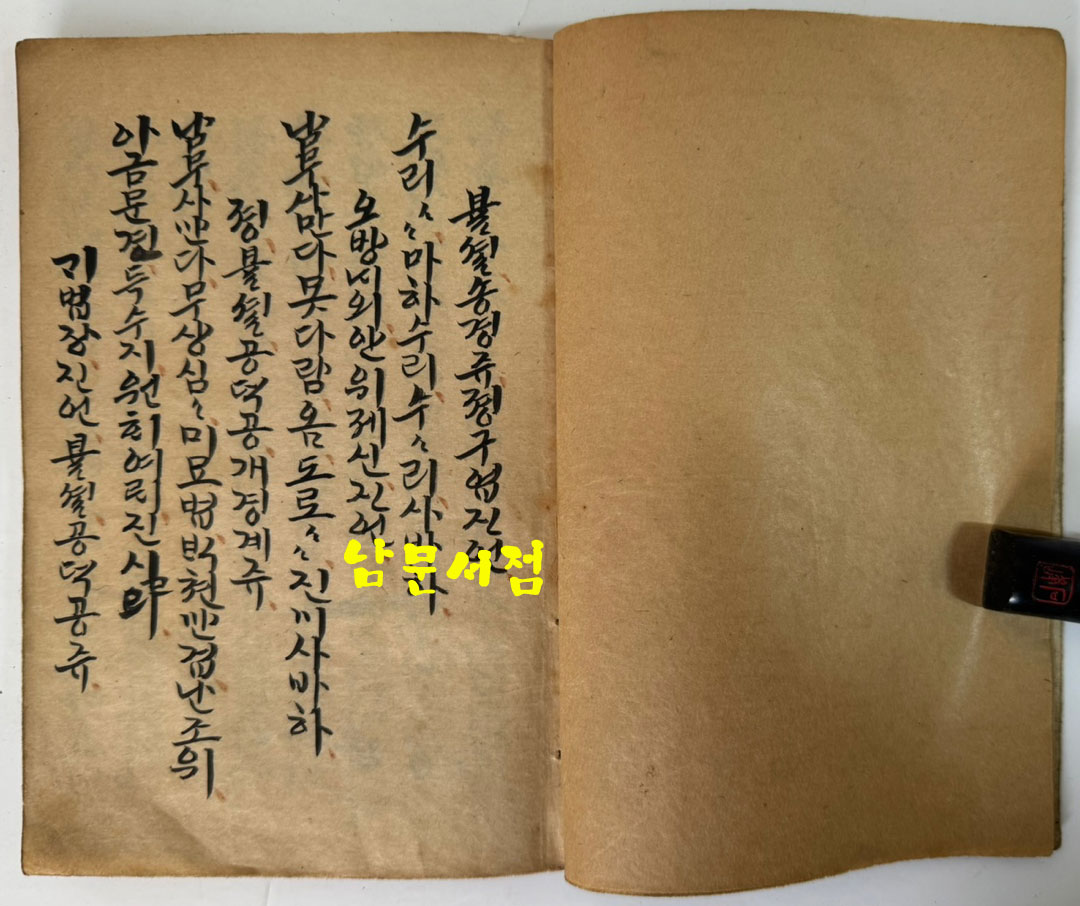 불셜송경쥬졍구업진언
수리〻마하수리수〻리사바하
오방네외안위제신진언
남무삼만다못다람옴도로〻진네사바하
졍불셜공덕공개경계쥬
남무사만다무상심〻미묘법박쳔만겁난조위
아금문견득수지원회여릐진
기법장진언불셜공덕공쥬
남문서점